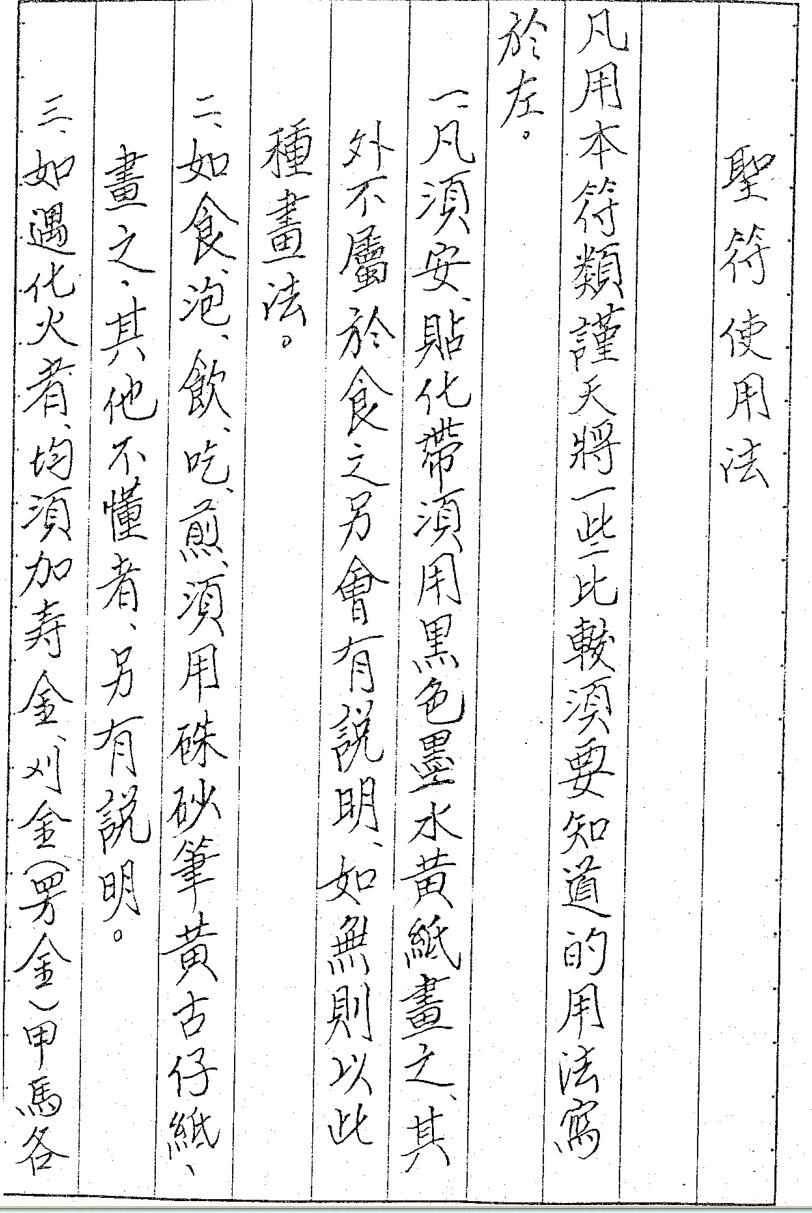 聖符使用法
凡用本符類謹天將一些比較須要知道的用法寫
於左。
一、凡須安、貼化帶須用黑色墨水黃紙畫之、其
外不屬於食之另會有説明、如無則以此
種畫法。
二、如食、泡、飲、吃、煎、須用硃砂筆黃古仔紙、
畫之、其他不懂者、另有説明。
三、如遇化火者、均須加寿金、刈金（男金）甲馬各